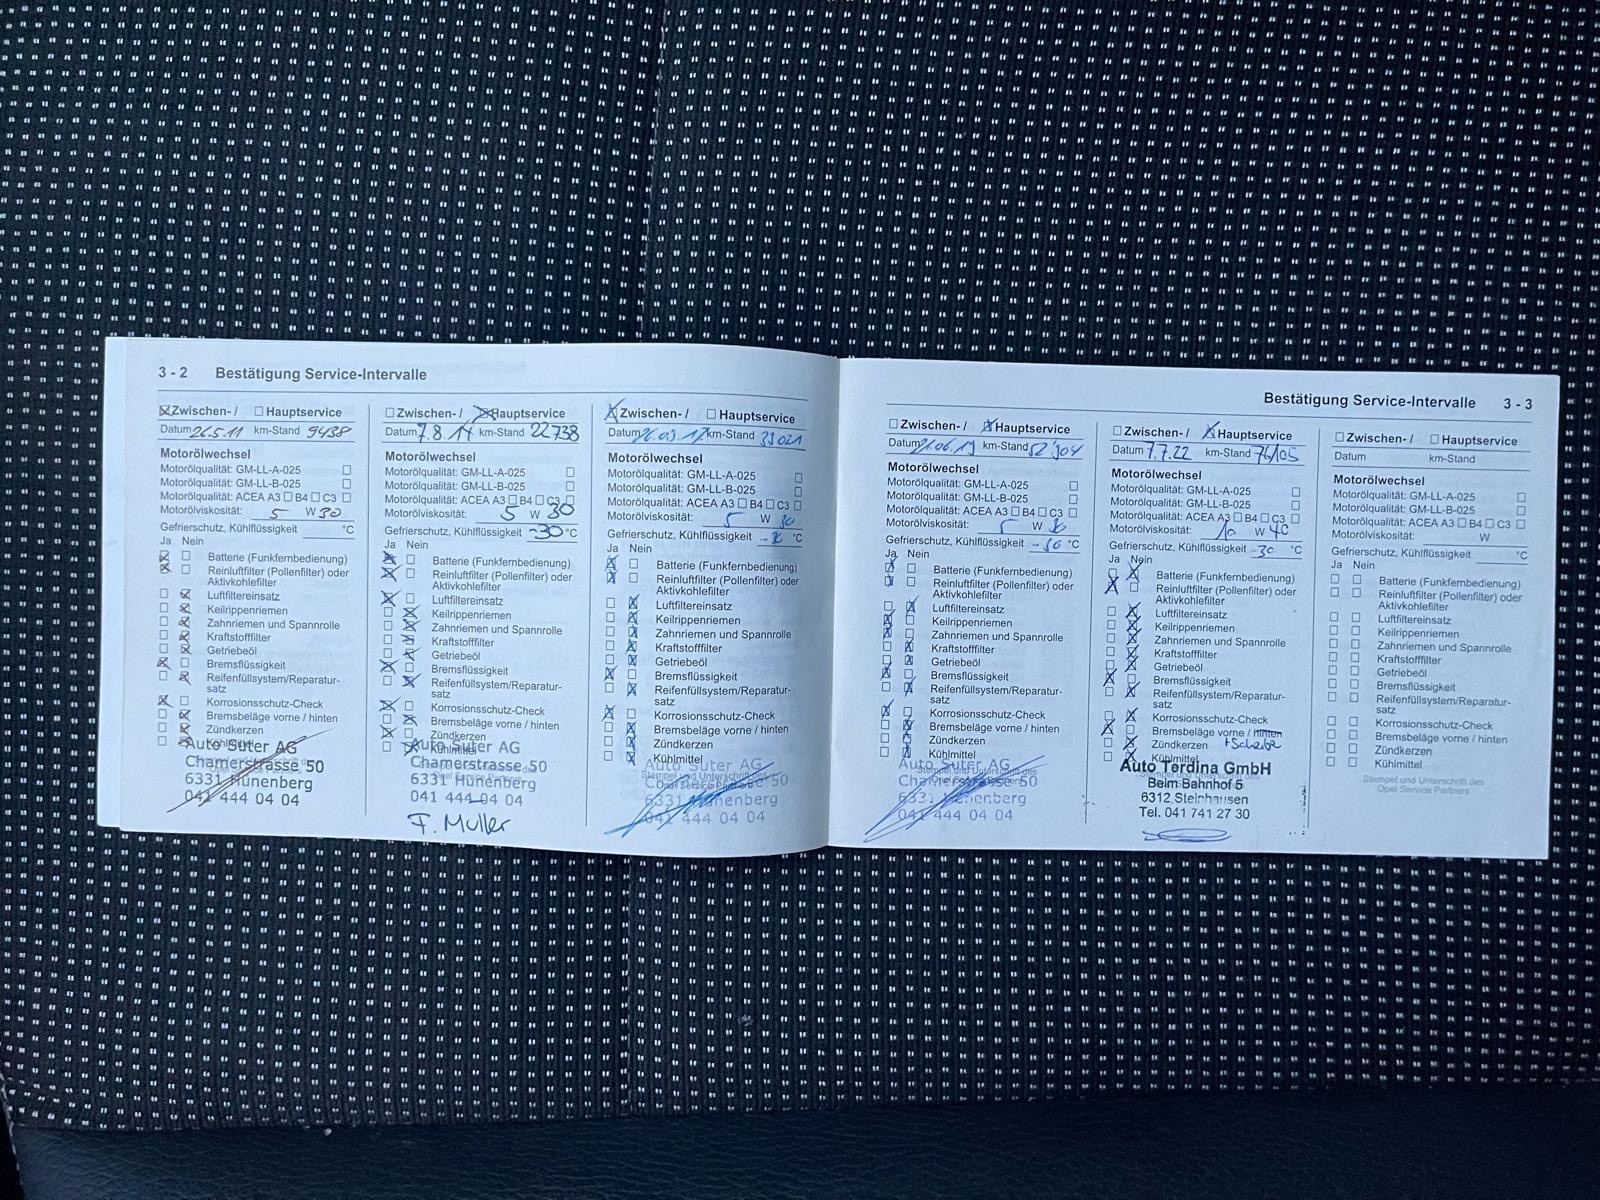 3 - 2 Bestätigung Service-Intervalle
Zwischen- / Hauptservice
Datum 26.5.11 km-Stand 9438
Motorölwechsel
Motorölqualität: GM-LL-A-025
Motorölqualität: GM-LL-B-025
Motorölqualität: ACEA A3 B4 C3
Motorölviskosität: 5 W 30
Gefrierschutz, Kühlflüssigkeit °C
Ja Nein
Batterie (Funkfernbedienung)
Reinluftfilter (Pollenfilter) oder
Aktivkohlefilter
Luftfiltereinsatz
Keilrippenriemen
Zahnriemen und Spannrolle
Kraftstofffilter
Getriebeöl
Bremsflüssigkeit
Reifenfüllsystem/Reparatur-
satz
Korrosionsschutz-Check
Bremsbeläge vorne / hinten
Zündkerzen
Auto Suter AG
Chamerstrasse 50
6331 Hünenberg
041 444 04 04
Zwischen- / Hauptservice
Datum 7.8.14 km-Stand 22738
Motorölwechsel
Motorölqualität: GM-LL-A-025
Motorölqualität: GM-LL-B-025
Motorölqualität: ACEA A3 B4 C3
Motorölviskosität: 5 W 30
Gefrierschutz, Kühlflüssigkeit -30 °C
Ja Nein
Batterie (Funkfernbedienung)
Reinluftfilter (Pollenfilter) oder
Aktivkohlefilter
Luftfiltereinsatz
Keilrippenriemen
Zahnriemen und Spannrolle
Kraftstofffilter
Getriebeöl
Bremsflüssigkeit
Reifenfüllsystem/Reparatur-
satz
Korrosionsschutz-Check
Bremsbeläge vorne / hinten
Zündkerzen
Kühlmittel
Auto Suter AG
Chamerstrasse 50
6331 Hünenberg
Opel Service Partners
041 444 04 04
F. Muller
Zwischen- / Hauptservice
Datum km-Stand 33021
Motorölwechsel
Motorölqualität: GM-LL-A-025
Motorölqualität: GM-LL-B-025
Motorölqualität: ACEA A3 B4 C3
Motorölviskosität: 5 W 30
Gefrierschutz, Kühlflüssigkeit °C
Ja Nein
Batterie (Funkfernbedienung)
Reinluftfilter (Pollenfilter) oder
Aktivkohlefilter
Luftfiltereinsatz
Keilrippenriemen
Zahnriemen und Spannrolle
Kraftstofffilter
Getriebeöl
Bremsflüssigkeit
Reifenfüllsystem/Reparatur-
satz
Korrosionsschutz-Check
Bremsbeläge vorne / hinten
Zündkerzen
Kühlmittel
Auto Suter AG
Stempel und Unterschrift des
50
6331 Hünenberg
041 444 04 04
Bestätigung Service-Intervalle 3 - 3
Zwischen- / Hauptservice
Datum 21.06.19 km-Stand 52'304
Motorölwechsel
Motorölqualität: GM-LL-A-025
Motorölqualität: GM-LL-B-025
Motorölqualität: ACEA A3 B4 C3
Motorölviskosität: 5 W 30
Gefrierschutz, Kühlflüssigkeit -30 °C
Ja Nein
Batterie (Funkfernbedienung)
Reinluftfilter (Pollenfilter) oder
Aktivkohlefilter
Luftfiltereinsatz
Keilrippenriemen
Zahnriemen und Spannrolle
Kraftstofffilter
Getriebeöl
Bremsflüssigkeit
Reifenfüllsystem/Reparatur-
satz
Korrosionsschutz-Check
Bremsbeläge vorne / hinten
Zündkerzen
Kühlmittel
Auto Suter AG
Stempel und Unterschrift des
Chamerstrasse 50
6331 Hünenberg
041 444 04 04
Zwischen- / Hauptservice
Datum 7.7.22 km-Stand 76105
Motorölwechsel
Motorölqualität: GM-LL-A-025
Motorölqualität: GM-LL-B-025
Motorölqualität: ACEA A3 B4 C3
Motorölviskosität: 10 W 40
Gefrierschutz, Kühlflüssigkeit -30 °C
Ja Nein
Batterie (Funkfernbedienung)
Reinluftfilter (Pollenfilter) oder
Aktivkohlefilter
Luftfiltereinsatz
Keilrippenriemen
Zahnriemen und Spannrolle
Kraftstofffilter
Getriebeöl
Bremsflüssigkeit
Reifenfüllsystem/Reparatur-
satz
Korrosionsschutz-Check
Bremsbeläge vorne / hinten
Zündkerzen
Kühlmittel
Auto Terdina GmbH
Beim Bahnhof 5
6312 Steinhausen
Tel. 041 741 27 30
Zwischen- / Hauptservice
Datum km-Stand
Motorölwechsel
Motorölqualität: GM-LL-A-025
Motorölqualität: GM-LL-B-025
Motorölqualität: ACEA A3 B4 C3
Motorölviskosität: W
Gefrierschutz, Kühlflüssigkeit °C
Ja Nein
Batterie (Funkfernbedienung)
Reinluftfilter (Pollenfilter) oder
Aktivkohlefilter
Luftfiltereinsatz
Keilrippenriemen
Zahnriemen und Spannrolle
Kraftstofffilter
Getriebeöl
Bremsflüssigkeit
Reifenfüllsystem/Reparatur-
satz
Korrosionsschutz-Check
Bremsbeläge vorne / hinten
Zündkerzen
Kühlmittel
Stempel und Unterschrift des
Opel Service Partners